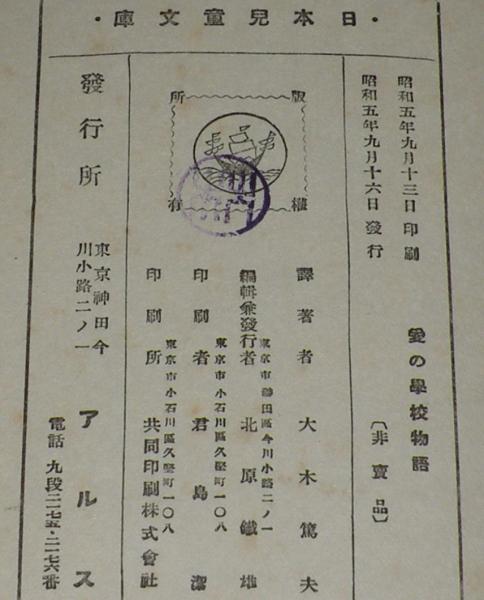 ・日本兒童文庫・
昭和五年九月十三日印刷
昭和五年九月十六日發行
愛の學校物語
〔非賣品〕
版權所有
譯著者 大木篤夫
東京市神田區今川小路二ノ一
編輯兼發行者 北原鐵雄
東京市小石川區久堅町一〇八
印刷者 君島潔
東京市小石川區久堅町一〇八
印刷所 共同印刷株式會社
發行所
東京神田今
川小路二ノ一
アルス
電話 九段二一七五・二一七六番